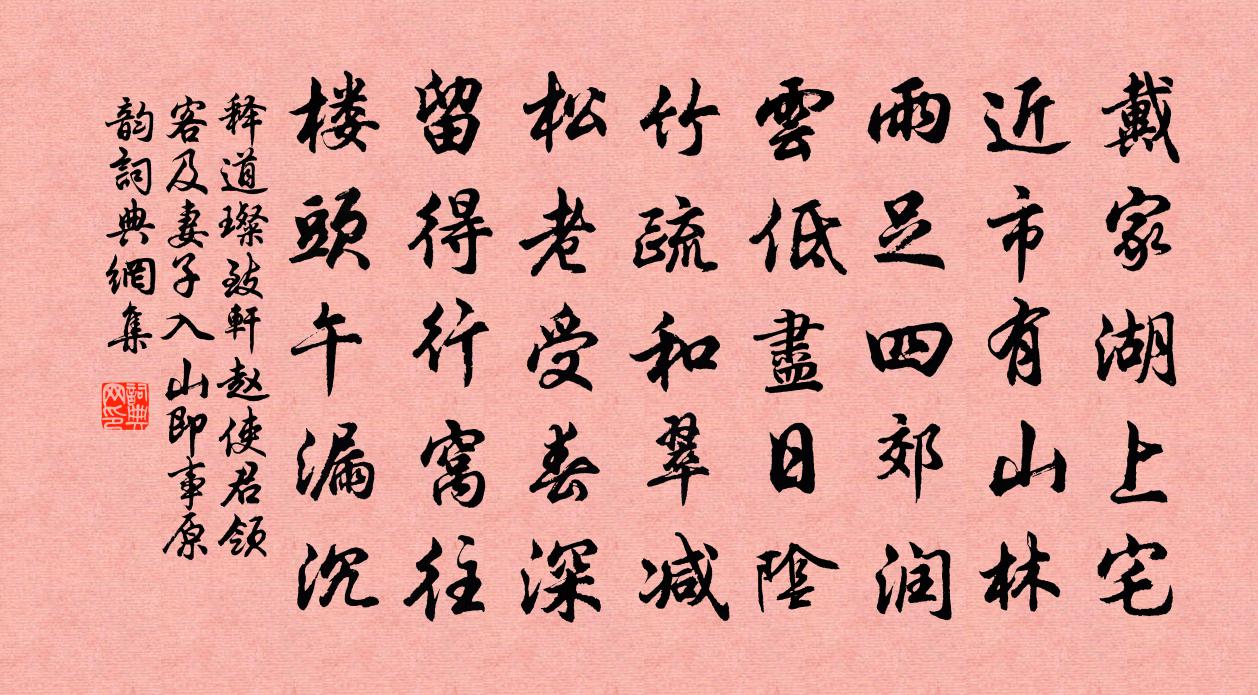 戴家湖上宅
近市有山林
雨足四郊润
雲低盡日陰
竹疏和翠减
松老受春深
留得行窝往
楼頭午漏沉
释道璨致軒赵使君领
客及妻子入山即事原
韵詞典網集
詞典网印